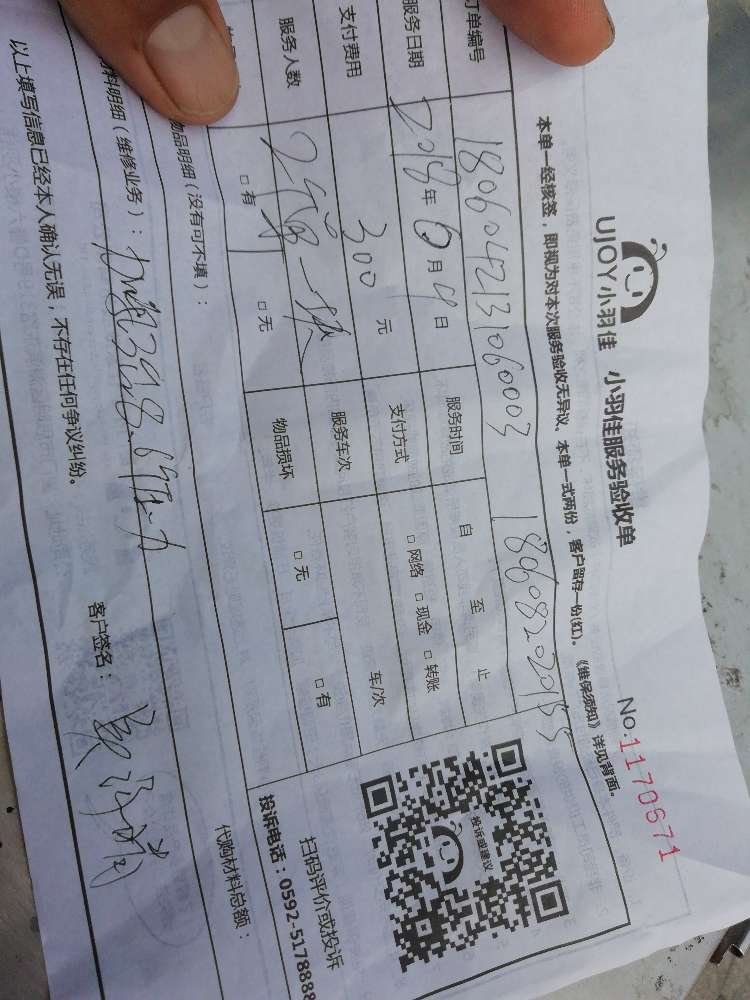 UJOY小羽佳 小羽佳服务验收单 No:1170671
本单一经核签，即视为对本次服务验收无异议。本单一式两份，客户留存一份(红)。《维保须知》详见背面。
订单编号 1806042131060003 1806082020155
服务日期 2018年6月4日 服务时间 自 至 止
支付费用 300元 支付方式 □网络 □现金 □转账
服务人数 服务车次 车/次
□有 □无 物品损坏 □无 □有
投诉或建议
扫码评价或投诉
投诉电话：0592-5178888
物品明细（没有可不填）：
材料明细（维修业务）： 代购材料总额：
以上填写信息已经本人确认无误，不存在任何争议纠纷。 客户签名：